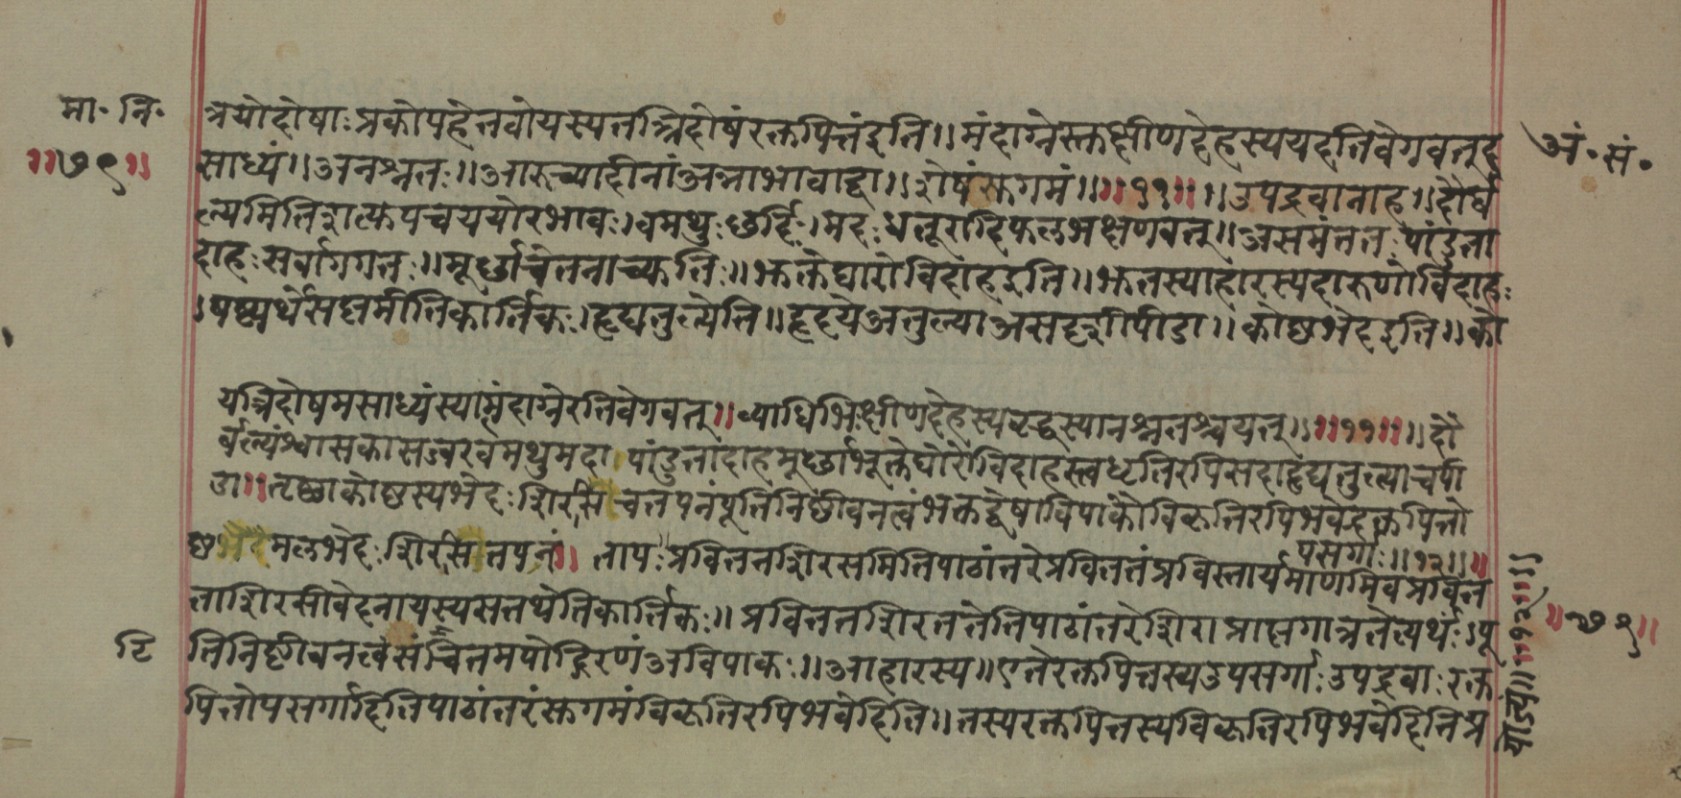 मा॰ नि॰
॥७९॥
अं॰ सं॰
त्रयोदोषाः प्रकोपहेतवोयस्यतत्रिदोषंरक्तपित्तंइति॥ मंदाग्नेस्तक्षीणदेहस्ययदतिवेगवत्तद
साध्यं॥ अनश्नतः॥ आरुच्यादीनांअन्नाभावाद्वा॥ शेषंरुगमं॥ ॥११॥ ॥ उपद्रवानाह॥ दौर्ब
ल्यमितिशक्त्यपचययोरभावः। वमथुः छर्दिः। मदः धत्तूरादिफलभक्षणवत्॥ असमंततः पांडुता
दाहः सर्वांगगतः॥ मूर्छाचेतनाच्यतिः॥ भक्तेघोरोविदाहइति॥ भक्तस्याहारस्यदारुणोविदाहः
। षष्ठ्यर्थेसप्तमीतिकार्तिकः। हृद्यतुल्येति॥ हृदयेअतुल्याअसदृशीपीडा॥ कोष्ठभेदइति॥ को
यत्रिदोषमसाध्यंस्यान्मंदाग्नेरतिवेगवत्॥ व्याधिभिःक्षीणदेहस्यवृद्धस्यानश्नतश्चयत्॥ ॥११॥ ॥ दौ
र्बल्यंश्वासकासज्वरवमथुमदा पांडुतादाहमूर्छाभुक्तेघोरोविदाहस्त्वधृतिरपिसदाहृद्यतुल्याचपी
डा॥ तृष्णाकोष्ठस्यभेदः शिरसि चतपनंपूतिनिष्ठीवनत्वंभक्तद्वेषाविपाकोविकृतिरपिभवेद्रक्तपित्तो
पसर्गाः॥१२॥ ॥
ष्ठभेदमलभेदः शिरसि तपनं॥ तापः प्रविततशिरसमितिपाठांतरेप्रविततंप्रविस्तार्यमाणमिवप्रवित
ताशिरसोवेदनायस्यसतथेतिकार्तिकः॥ प्रविततशिरततेतिपाठांतरेशिराप्राप्तगात्रतेत्यर्थः। पू
तिनिष्ठीवनत्वंसंचितमपोद्गिरणंअविपाकः॥ आहारस्य॥ एतेरक्तपित्तस्यउपसर्गाः उपद्रवाः रक्त
पित्तोपसर्गादितिपाठांतरंरुगमंविकृतिरपिभवेदिति॥ तस्यरक्तपित्तस्यविकृतिरपिभवेदितिप्र
टि
॥७९॥